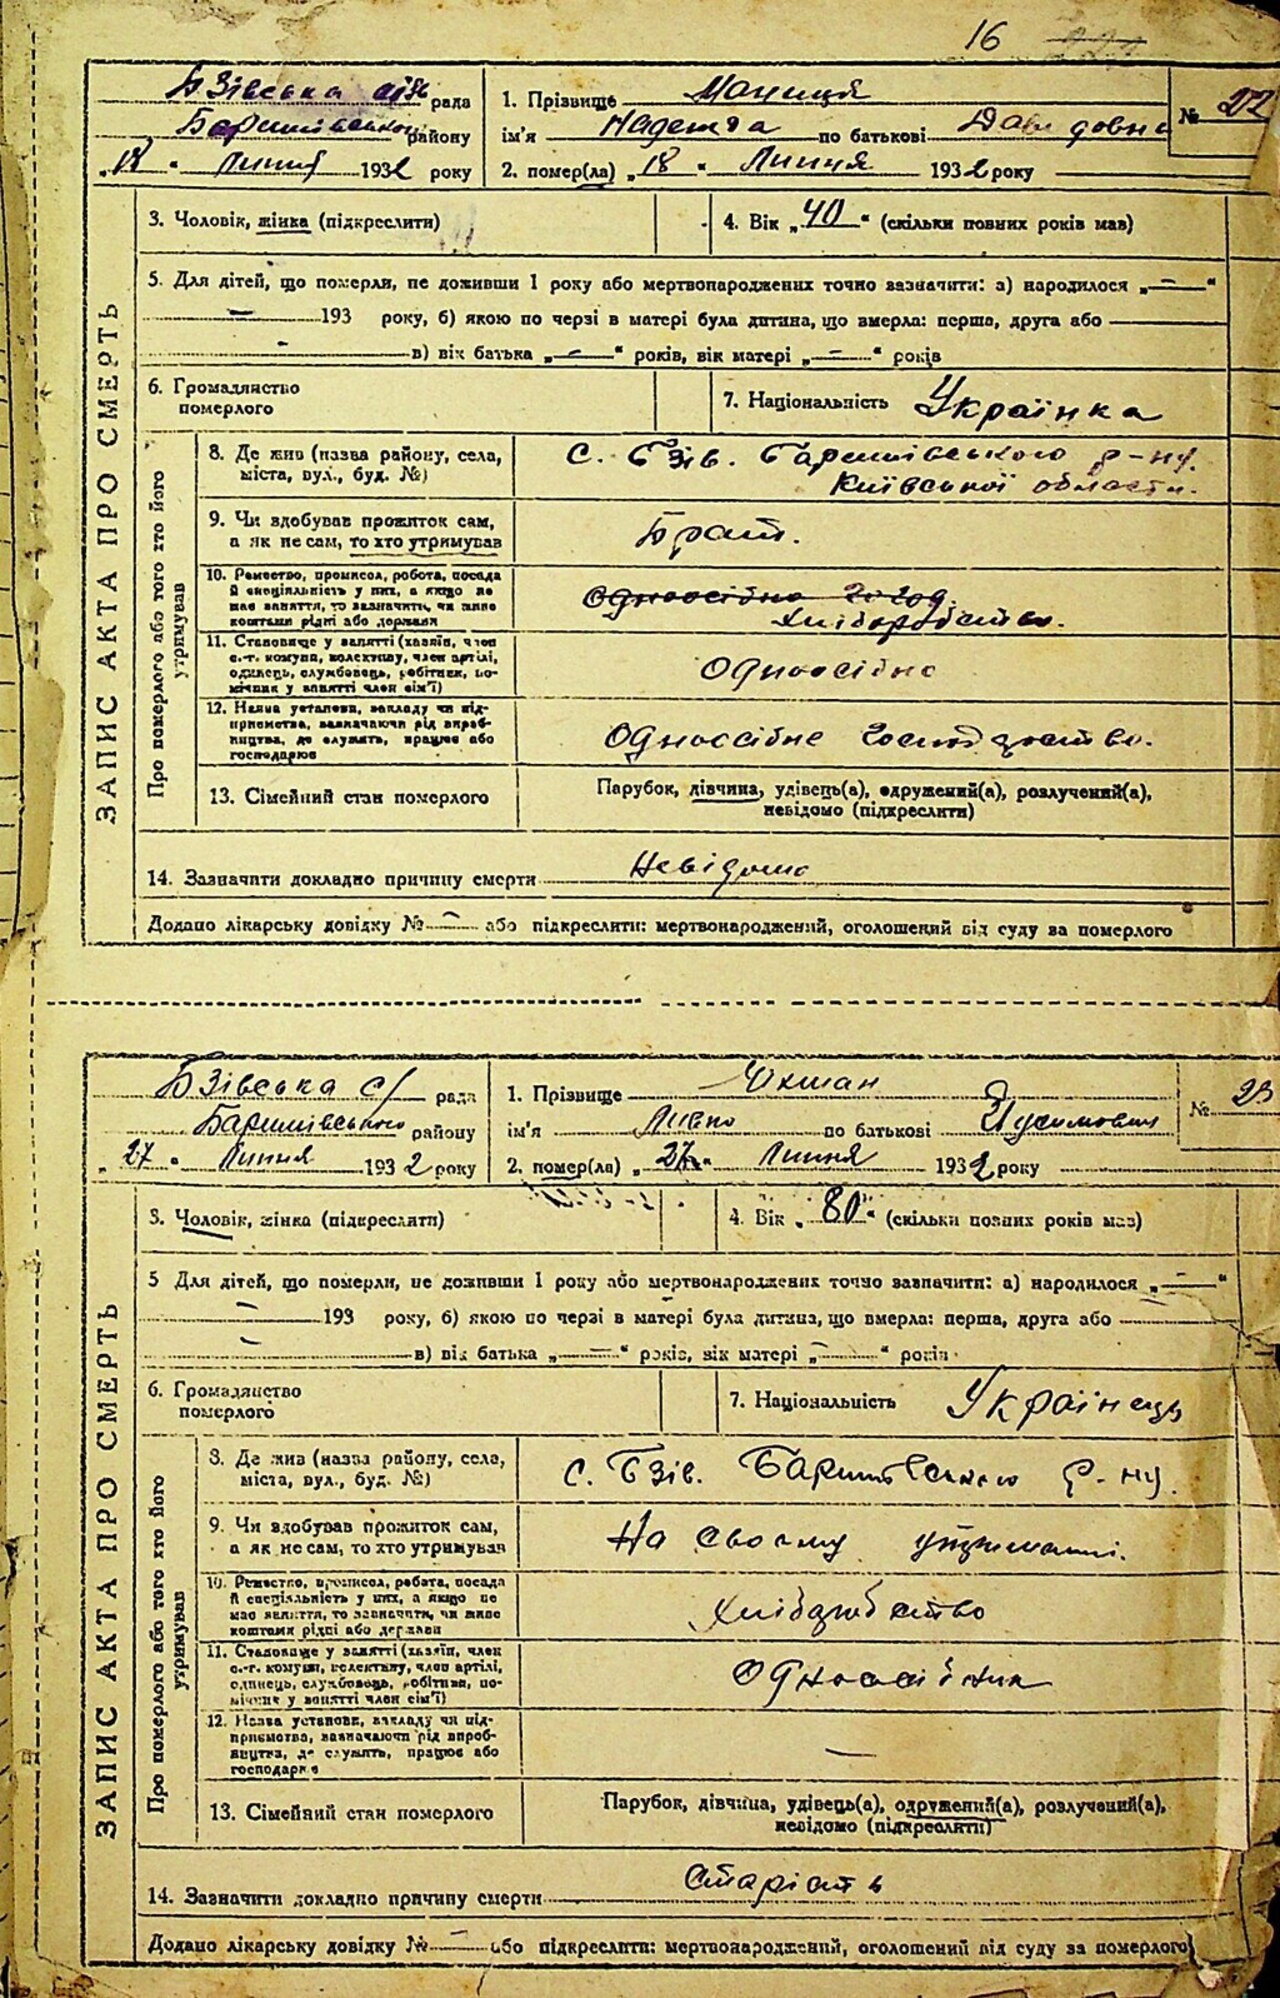 16
БЗівська сільрада
Баришівського району
„18“ Липня 1932 року
1. Прізвище
ім'я Надежда по батькові Давидовна
№ 22
2. помер(ла) „18“ Липня 1932 року
3. Чоловік, жінка (підкреслити)
4. Вік „40“ (скільки повних років мав)
5. Для дітей, що померли, не доживши 1 року або мертвонароджених точно зазначити: а) народилося „—“
— 193 року, б) якою по черзі в матері була дитина, що вмерла: перша, друга або
— в) вік батька „—“ років, вік матері „—“ років
6. Громадянство
померлого
7. Національність Українка
ЗАПИС АКТА ПРО СМЕРТЬ
Про померлого або того хто його
утримував
8. Де жив (назва району, села,
міста, вул., буд. №)
с. БЗів. Баришівського р-ну.
Київської области.
9. Чи здобував прожиток сам,
а як не сам, то хто утримував
Брат.
10. Ремество, промисол, робота, посада
й спеціяльність у них, а якщо не
має заняття, то зазначити, чи живе
коштами рідні або держави
Хліборобство.
11. Становище у занятті (хазяїн, член
с.-г. комуни, колективу, член артілі,
одинець, службовець, робітник, по-
мічник у занятті член сім'ї)
Одноосібно
12. Назва установи, закладу чи під-
приємства, зазначаючи рід вироб-
ництва, де служить, працює або
господарює
Одноосібне господарство.
13. Сімейний стан померлого
Парубок, дівчина, удівець(а), одружений(а), розлучений(а),
невідомо (підкреслити)
14. Зазначити докладно причину смерти невідомо
Додано лікарську довідку № — або підкреслити: мертвонароджений, оголошений від суду за померлого
БЗівська с/ рада
Баришівського району
„27“ Липня 1932 року
1. Прізвище Юхман
ім'я по батькові
№ 23
2. помер(ла) „27“ Липня 1932 року
3. Чоловік, жінка (підкреслити)
4. Вік „80“ (скільки повних років мав)
5 Для дітей, що померли, не доживши 1 року або мертвонароджених точно зазначити: а) народилося „—“
— 193 року, б) якою по черзі в матері була дитина, що вмерла: перша, друга або
— в) вік батька „—“ років, вік матері „—“ років
6. Громадянство
померлого
7. Національність Українець
ЗАПИС АКТА ПРО СМЕРТЬ
Про померлого або того хто його
утримував
8. Де жив (назва району, села,
міста, вул., буд. №)
с. БЗів. Баришівського р-ну.
9. Чи здобував прожиток сам,
а як не сам, то хто утримував
На своєму утриманні.
10. Ремество, промисол, робота, посада
й спеціяльність у них, а якщо не
має заняття, то зазначити, чи живе
коштами рідні або держави
Хліборобство
11. Становище у занятті (хазяїн, член
с.-г. комуни, колективу, член артілі,
одинець, службовець, робітник, по-
мічник у занятті член сім'ї)
Одноосібник
12. Назва установи, закладу чи під-
приємства, зазначаючи рід вироб-
ництва, де служить, працює або
господарює
—
13. Сімейний стан померлого
Парубок, дівчина, удівець(а), одружений(а), розлучений(а),
невідомо (підкреслити)
14. Зазначити докладно причину смерти старість
Додано лікарську довідку № — або підкреслити: мертвонароджений, оголошений від суду за померлого